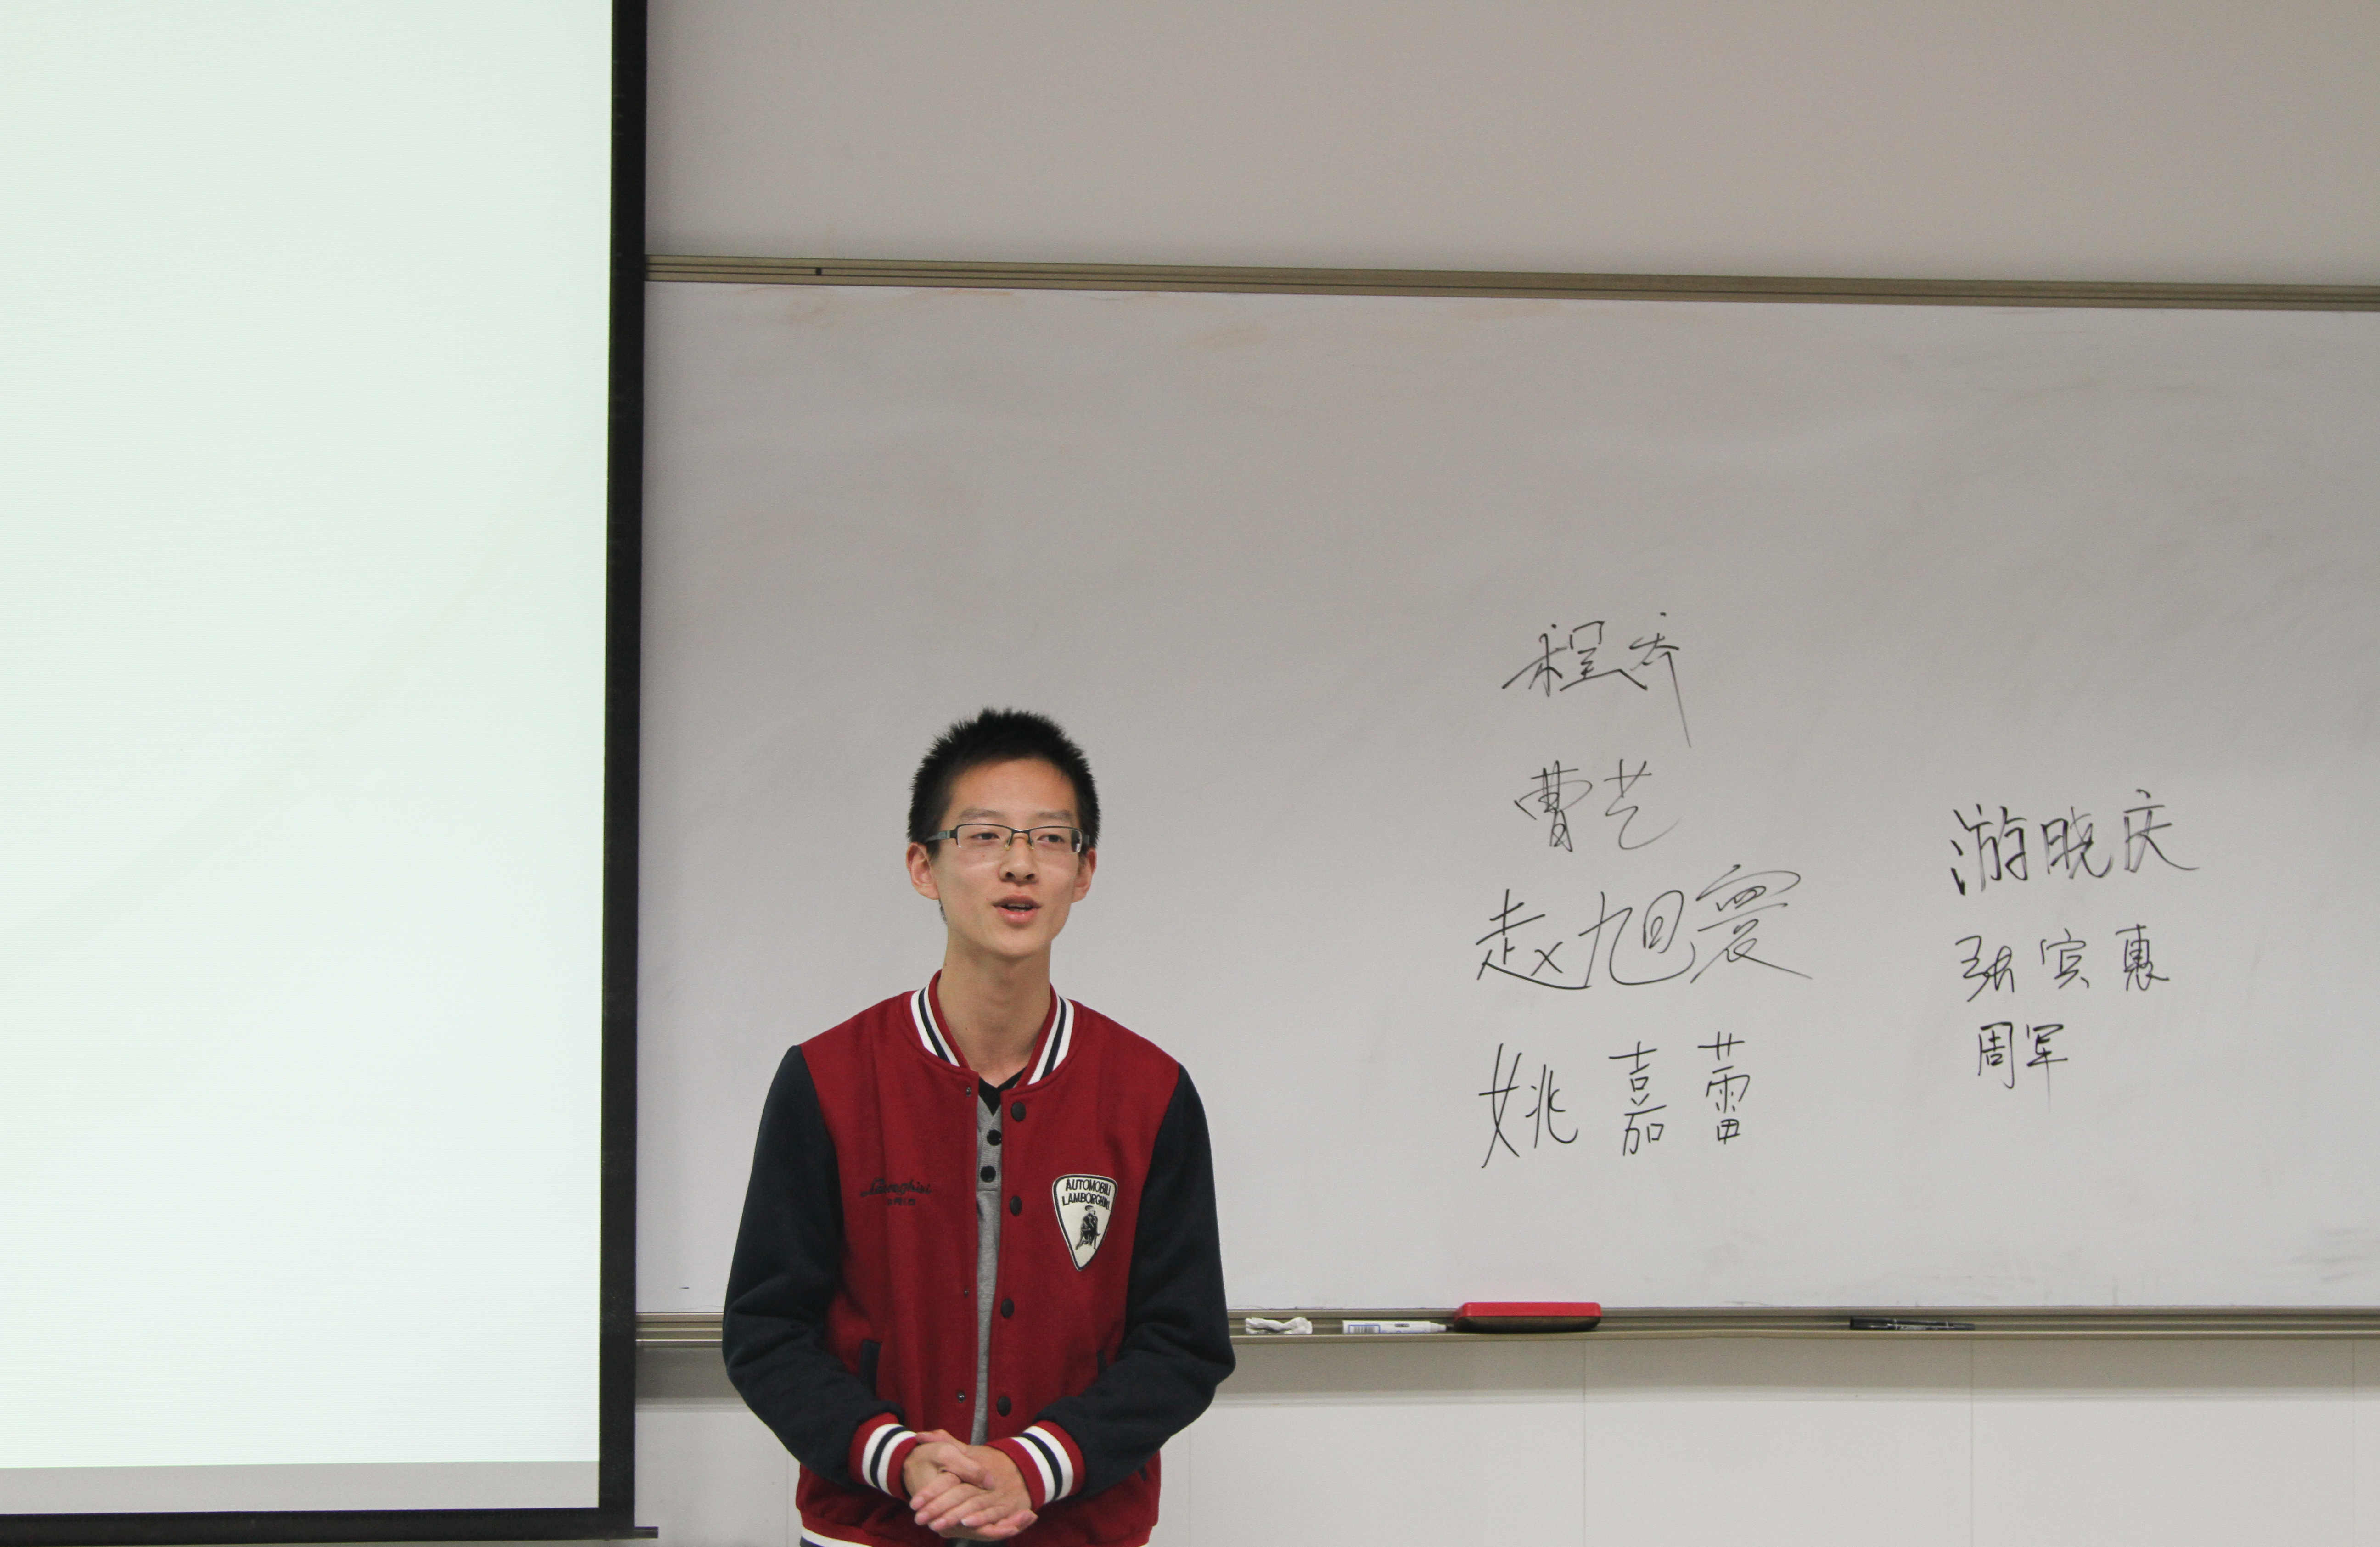 程乔
曹艺
赵旭寰
姚嘉蕾
游晓庆
张宾惠
周军
AUTOMOBILI
LAMBORGHINI